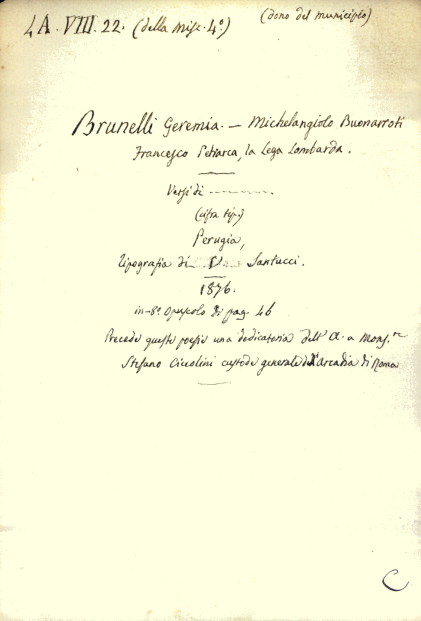 LA. VIII. 22. (della Misc. 4.°)
(dono del municipio)
Brunelli Geremia. — Michelangiolo Buonarroti
Francesco Petrarca, la Lega Lombarda.
Versi di
(cifra tip.)
Perugia,
Tipografia di Santucci.
1876.
in-8° Opuscolo di pag. 46
Precede queste poesie una dedicatoria dell'A. a Mons.re
Stefano Ciccolini custode generale dell'Arcadia di Roma
C